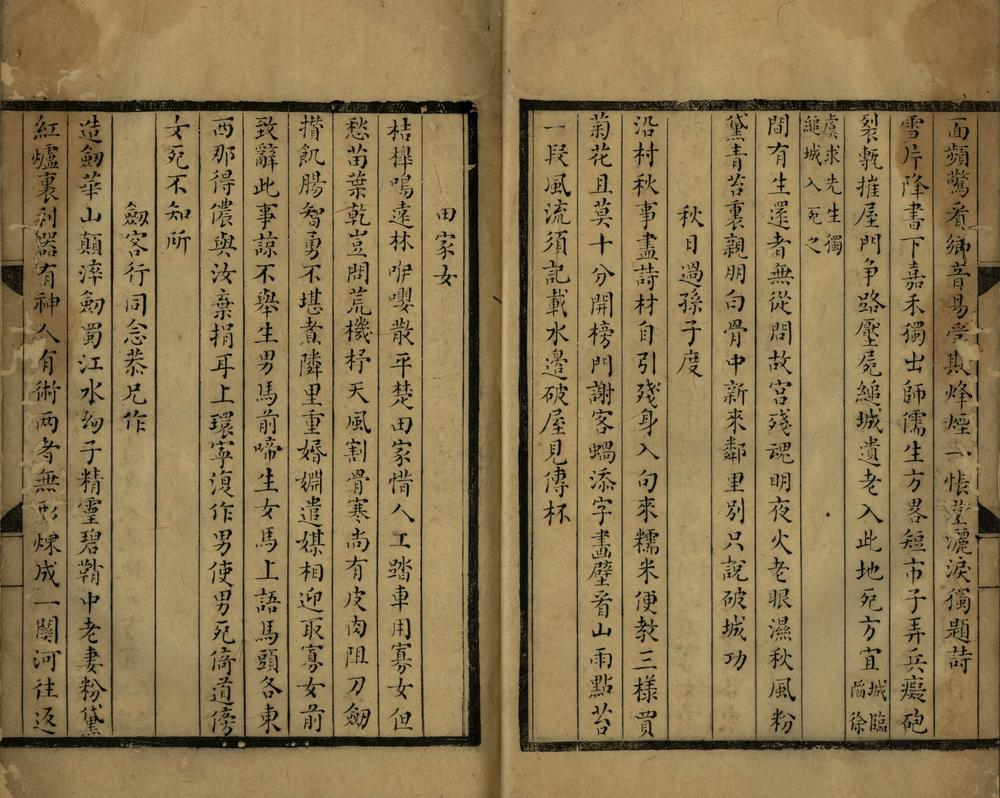 面頻驚看鄉音易受欺烽煙一悵望灑淚獨題詩
雪片降書下嘉禾獨出師儒生方畧短市子弄兵癡砲
裂甎摧屋門爭路壓屍縋城遺老入此地死方宜城臨陷徐
虞求先生獨縋城入死之
間有生還者無從問故宮殘魂明夜火老眼濕秋風粉
黛青苔裏親朋白骨中新來鄰里別只說破城功
秋日過孫子度
沿村秋事盡詩材自引殘身入句來糯米便教三樣買
菊花且莫十分開榜門謝客蝸添字畫壁看山雨點苔
一段風流須記載水邊破屋見傳杯
田家女
桔槹鳴遠林咿嚶散平楚田家惜人工踏車用寡女但
愁苗葉乾豈問荒機杼天風割骨寒尚有皮肉阻刀劒
攢飢腸智勇不堪煮隣里重婚姻遣媒相迎取寡女前
致辭此事諒不舉生男馬前啼生女馬上語馬頭各東
西那得儂與汝棄捐耳上環寧復作男使男死倚道傍
女死不知所
劒客行同念恭兄作
造劒華山顛淬劒蜀江水幼子精靈碧鞘中老妻粉黛
紅爐裏利器有神人有術兩者無形煉成一關河往返